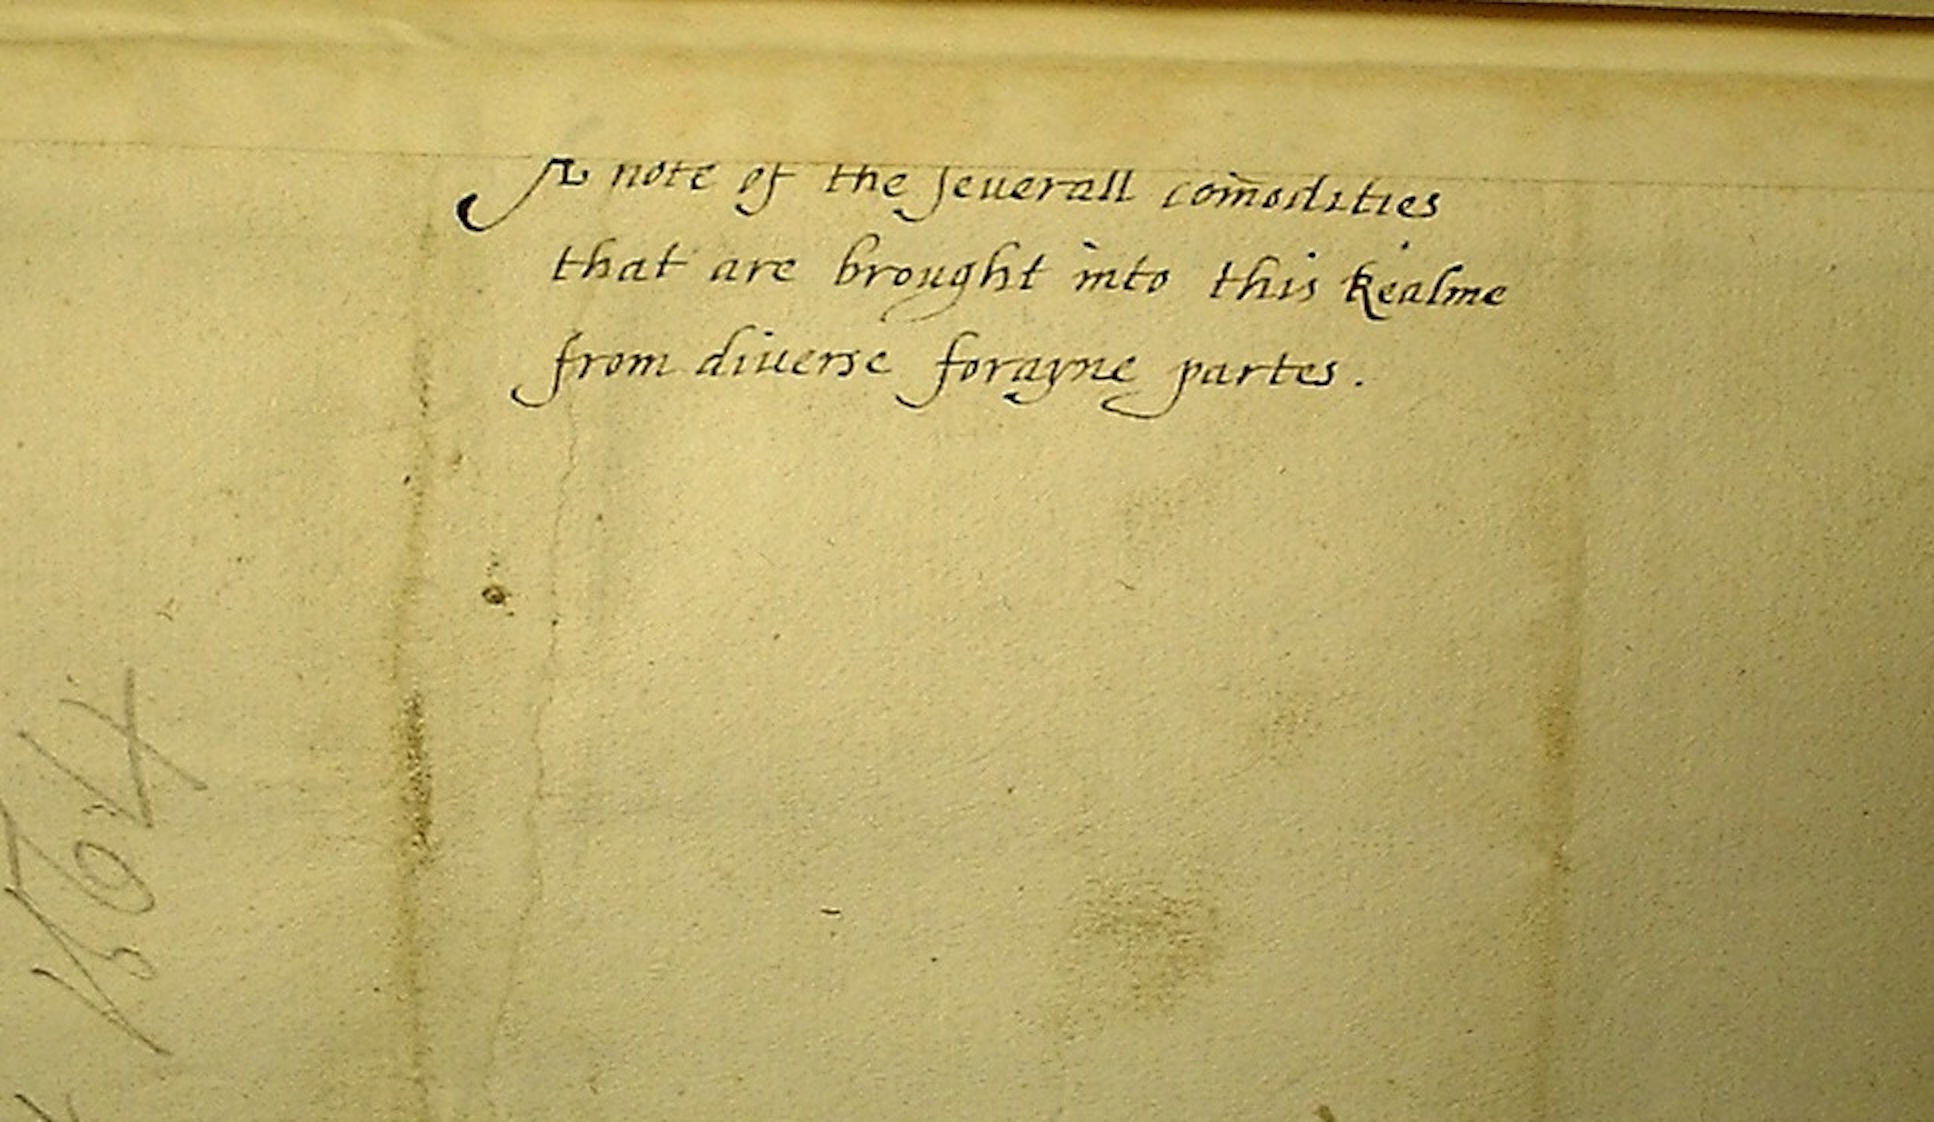 A note of the seuerall com̄odities
that are brought into this Realme
from diuerse forayne partes.
1564